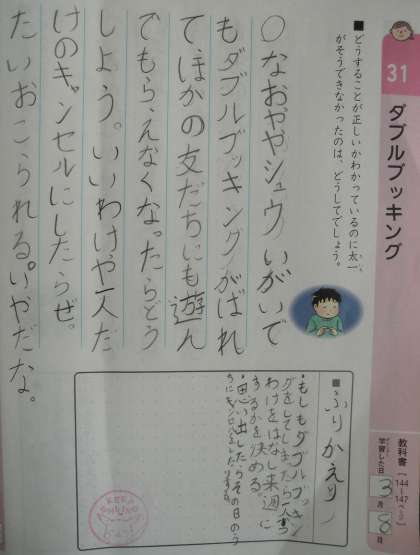 31
ダブルブッキング
教科書
144〜147ページ
学習した日
3月8日
■どうすることが正しいかわかっているのに太一
がそうできなかったのは、どうしてでしょう。
○なおややシュウいがいで
もダブルブッキングがばれ
てほかの友だちにも遊ん
でもらえなくな。たらどう
しよう。いいわけや一人だ
けのキャンセルにしたらぜ。
たいおこられる。いやだな。
■ふりかえり
・もしもダブルブッキン
グをしてしまたら一人ずつ
わけをはなし来週に
するかを決める。
・思い出したらその日のう